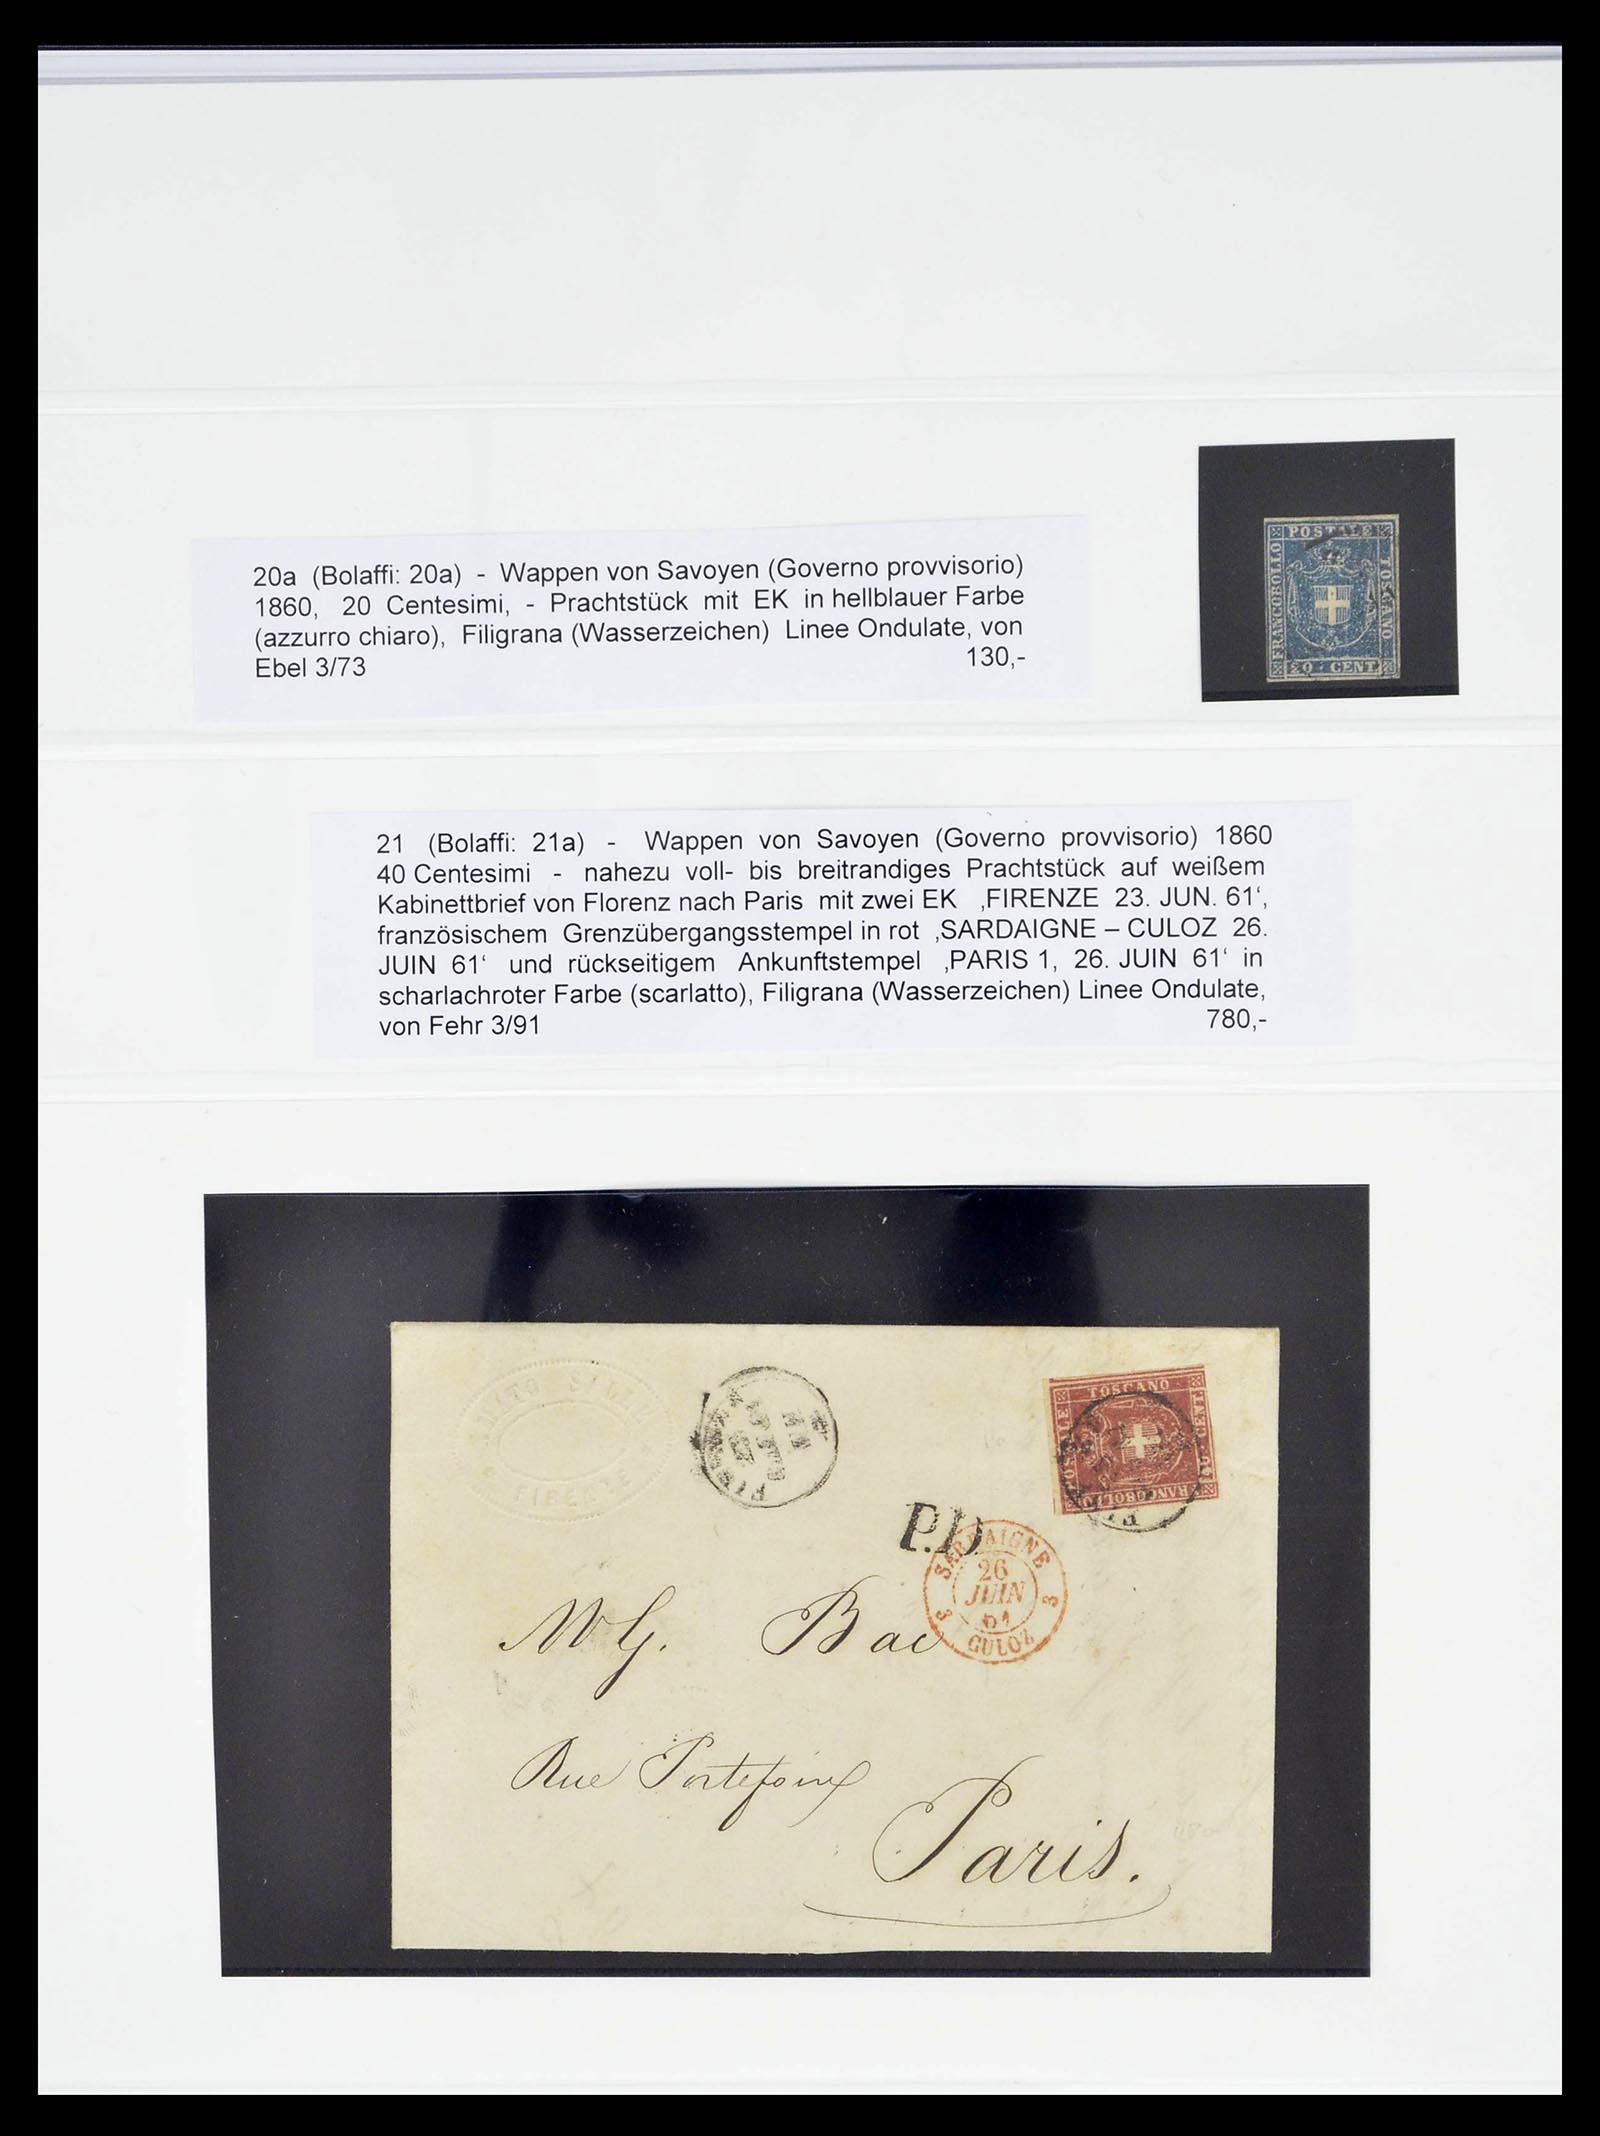 20a (Bolaffi: 20a) - Wappen von Savoyen (Governo provvisorio)
1860, 20 Centesimi, - Prachtstück mit EK in hellblauer Farbe
(azzurro chiaro), Filigrana (Wasserzeichen) Linee Ondulate, von
Ebel 3/73 130,-
POSTALE
FRANCOBOLLO
TOSCANO
20 CENT
21 (Bolaffi: 21a) - Wappen von Savoyen (Governo provvisorio) 1860
40 Centesimi - nahezu voll- bis breitrandiges Prachtstück auf weißem
Kabinettbrief von Florenz nach Paris mit zwei EK ‚FIRENZE 23. JUN. 61‘,
französischem Grenzübergangsstempel in rot ‚SARDAIGNE – CULOZ 26.
JUIN 61‘ und rückseitigem Ankunftstempel ‚PARIS 1, 26. JUIN 61‘ in
scharlachroter Farbe (scarlatto), Filigrana (Wasserzeichen) Linee Ondulate,
von Fehr 3/91 780,-
FIRENZE
TOSCANO
40 CENT
P.D.
SARDAIGNE
26
JUIN
61
3 3
CULOZ
Bac
Rue Portefoin
Paris.